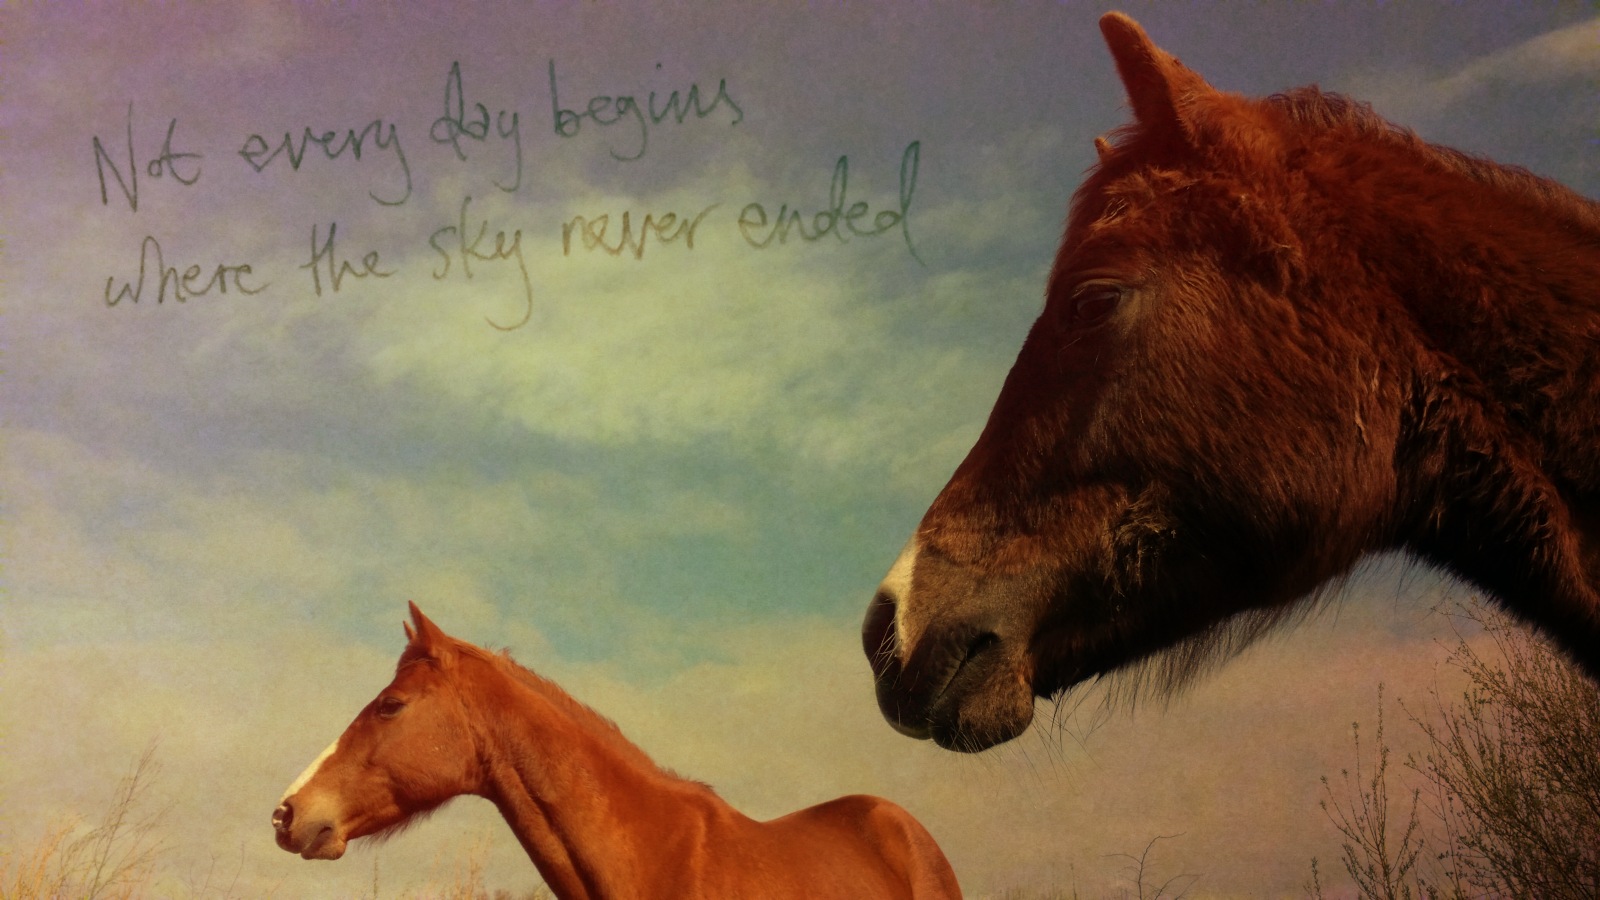 Not every day begins
where the sky never ended